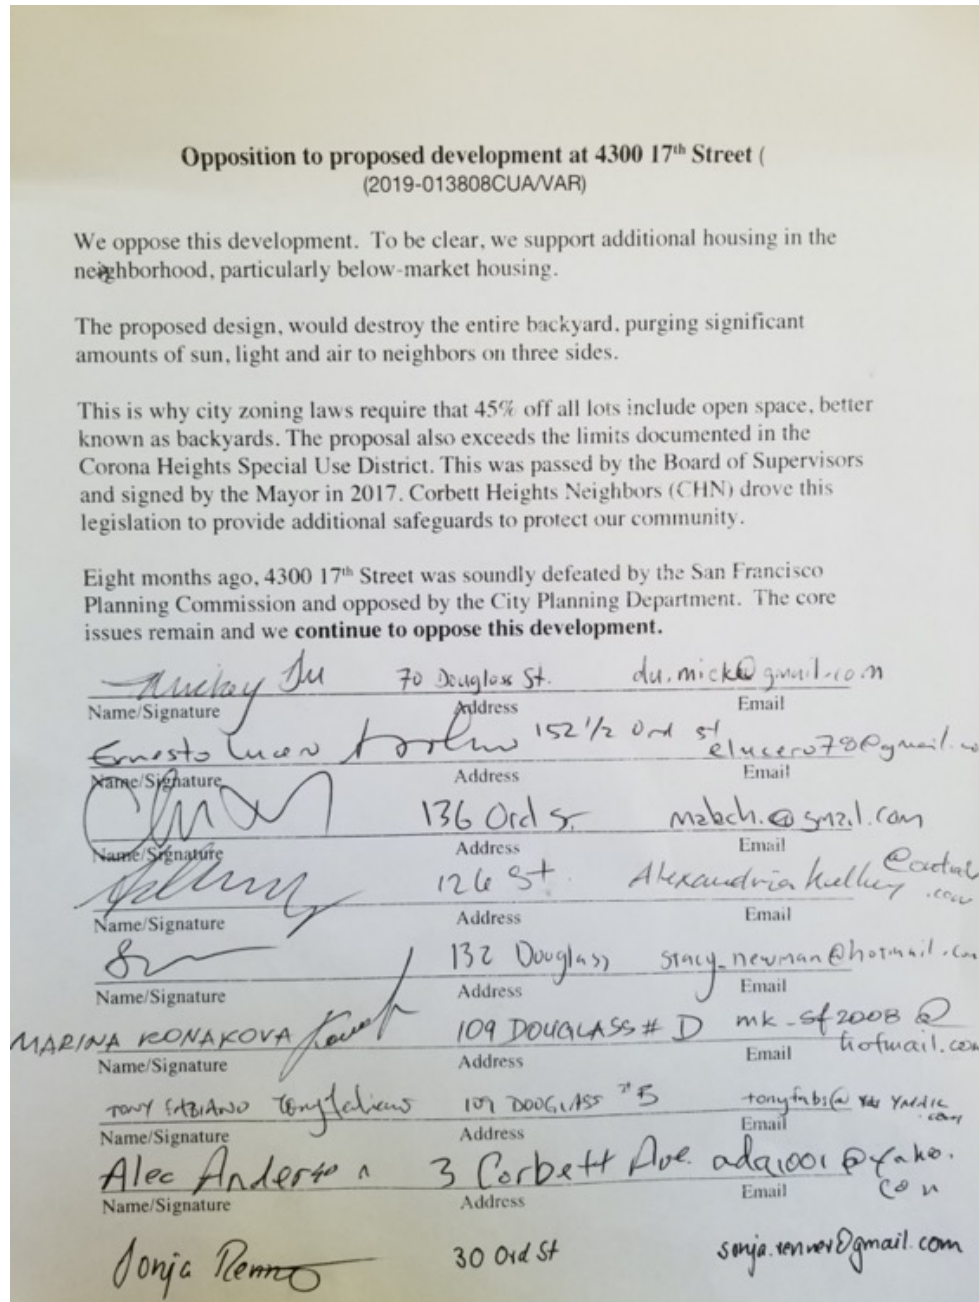 Opposition to proposed development at 4300 17th Street (
(2019-013808CUA/VAR)
We oppose this development. To be clear, we support additional housing in the
neighborhood, particularly below-market housing.
The proposed design, would destroy the entire backyard, purging significant
amounts of sun, light and air to neighbors on three sides.
This is why city zoning laws require that 45% off all lots include open space, better
known as backyards. The proposal also exceeds the limits documented in the
Corona Heights Special Use District. This was passed by the Board of Supervisors
and signed by the Mayor in 2017. Corbett Heights Neighbors (CHN) drove this
legislation to provide additional safeguards to protect our community.
Eight months ago, 4300 17th Street was soundly defeated by the San Francisco
Planning Commission and opposed by the City Planning Department. The core
issues remain and we continue to oppose this development.
Mickey Du 70 Douglass St. du.mick@gmail.com
Name/Signature Address Email
Ernesto Lucero 152 1/2 Ord st elucero78@gmail.co
Name/Signature Address Email
136 Ord St. @gmail.com
Name/Signature Address Email
126 St. Alexandria
Name/Signature Address Email
132 Douglass stacy_newman@hotmail.com
Name/Signature Address Email
MARINA KONAKOVA 109 DOUGLASS # D mk_sf2008@
hotmail.com
Name/Signature Address Email
TONY FABIANO Tony Fabiano 109 DOUGLASS #5 tonyfabs@
.com
Name/Signature Address Email
Alec Anderson 3 Corbett Ave. ada1001@yaho.
con
Name/Signature Address Email
Sonja Renner 30 Ord St sonja.renner@gmail.com